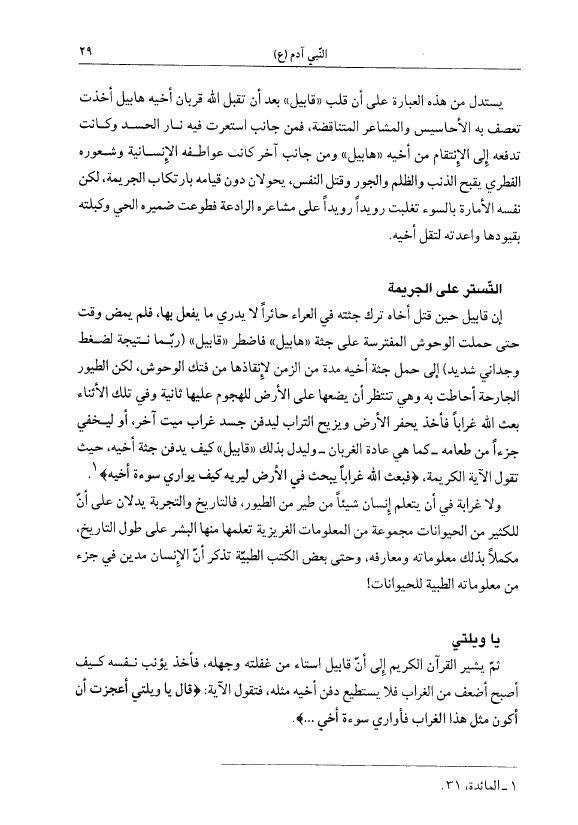 النّبي آدم (ع) ٢٩
يستدل من هذه العبارة على أن قلب «قابيل» بعد أن تقبل الله قربان أخيه هابيل أخذت
تعصف به الأحاسيس والمشاعر المتناقضة، فمن جانب استعرت فيه نـار الحسـد وكـانت
تدفعه إلى الإنتقام من أخيه «هابيل» ومن جانب آخر كانت عواطفـه الإنسـانية وشـعوره
الفطري يقبح الذنب والظلم والجور وقتل النفس، يحولان دون قيامه بارتكاب الجريمة، لكن
نفسه الأمارة بالسوء تغلبت رويداً رويداً على مشاعره الرادعة فطوعت ضميره الحي وكبلته
بقيودها واعدته لتقل أخيه.
التّستر على الجريمة
إن قابيل حين قتل أخاه ترك جثته في العراء حائراً لا يدري ما يفعل بها، فلم يمض وقت
حتى حملت الوحوش المفترسة على جثة «هابيل» فاضطر «قابيل» (ربّـما نـتيجة لضـغط
وجداني شديد) إلى حمل جثة أخيه مدة من الزمن لإنقاذها من فتك الوحوش، لكن الطيور
الجارحة أحاطت به وهي تنتظر أن يضعها على الأرض للهجوم عليها ثانية وفي تلك الأثناء
بعث الله غراباً فأخذ يحفر الأرض ويزيح التراب ليدفن جسد غراب ميت آخر، أو ليـخفي
جزءاً من طعامه ـ كما هي عادة الغربان ـ وليدل بذلك «قابيل» كيف يدفن جثة أخيه، حيث
تقول الآية الكريمة، ﴿فبعث الله غراباً يبحث في الأرض ليريه كيف يواري سوءة أخيه﴾١.
ولا غرابة في أن يتعلم إنسان شيئاً من طير من الطيور، فالتاريخ والتجربة يدلان على أنّ
للكثير من الحيوانات مجموعة من المعلومات الغريزية تعلمها منها البشر على طول التاريخ،
مكملاً بذلك معلوماته ومعارفه، وحتى بعض الكتب الطبيّة تذكر أنّ الإنسان مدين في جزء
من معلوماته الطبية للحيوانات!
يا ويلتي
ثمّ يشير القرآن الكريم إلى أنّ قابيل استاء من غفلته وجهله، فأخذ يؤنب نـفسه كـيف
أصبح أضعف من الغراب فلا يستطيع دفن أخيه مثله، فتقول الآية: ﴿قال يا ويلتي أعجزت أن
أكون مثل هذا الغراب فأواري سوءة أخي ...﴾.
١ ـ المائدة، ٣١.